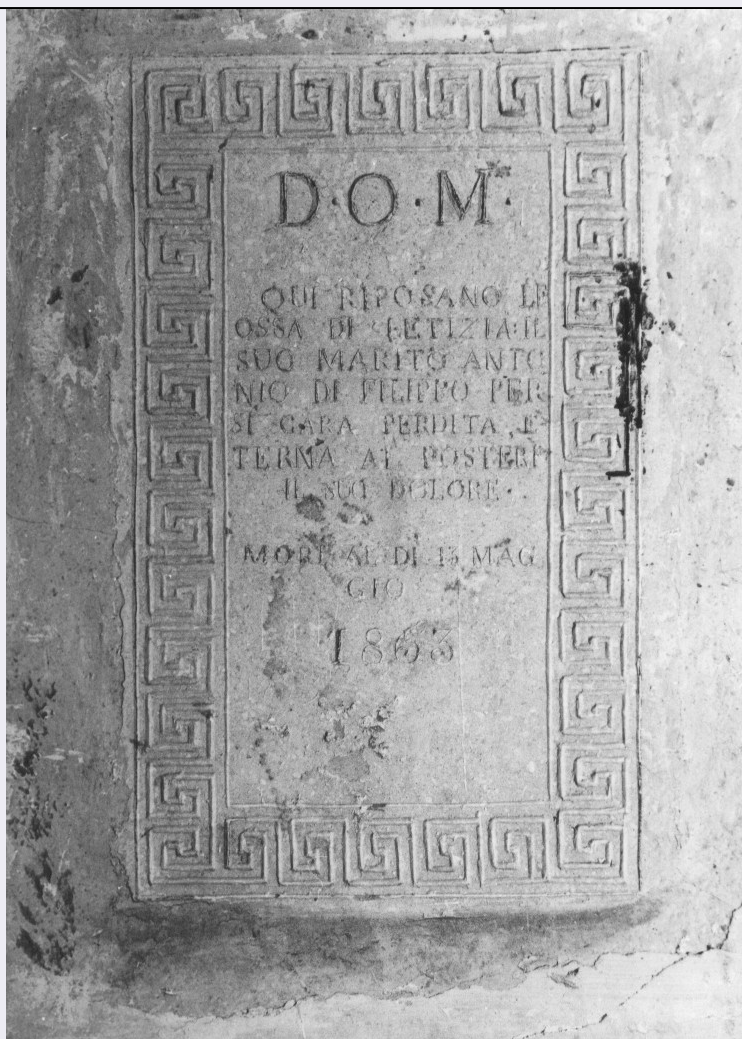 D·O·M·
QUI RIPOSANO LE
OSSA DI LETIZIA: IL
SUO MARITO ANTO
NIO DI FILIPPO PER
SI CARA PERDITA E
TERNA AI POSTERI
IL SUO DOLORE.
MORI AL DI 13 MAG
GIO
1863